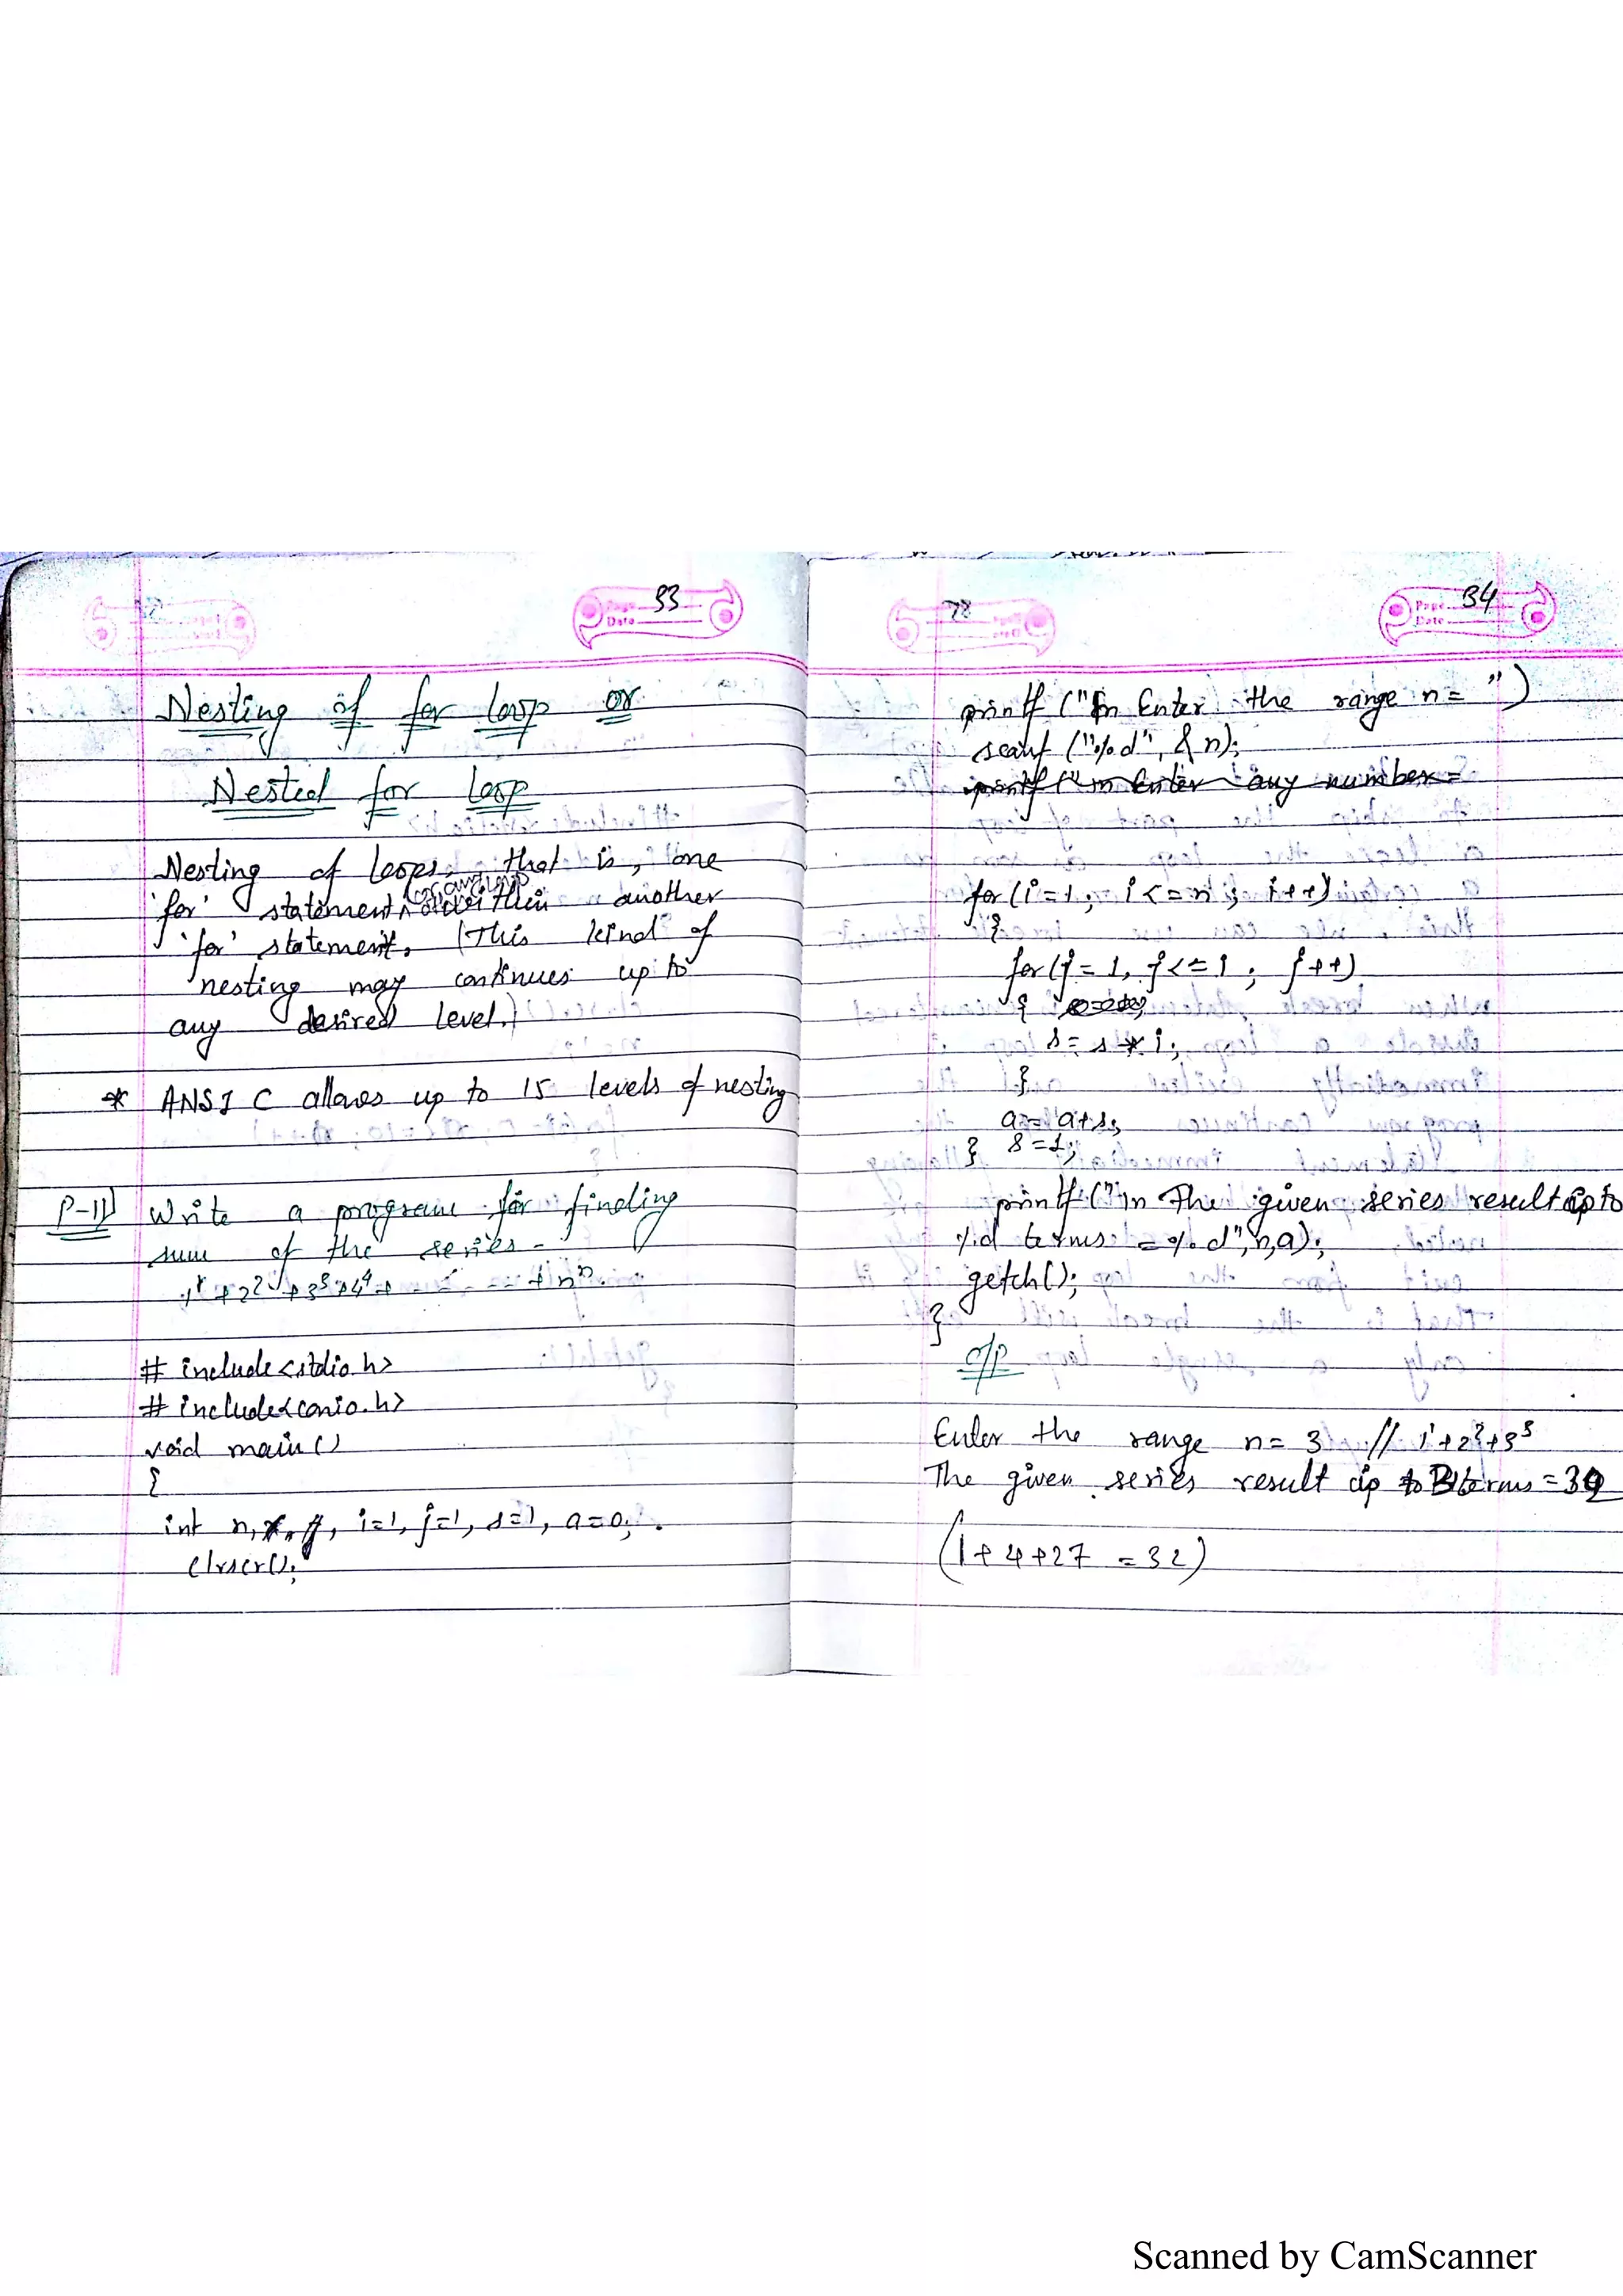 33
Nesting of for loop or
Nested for loop
Nesting of loops, that is, one
'for' statement (or any loop) within another
'for' statement. (This kind of
nesting may continues up to
any desired level.)
* ANSI C allows up to 15 levels of nesting
P-11) Write a program for finding
sum of the series -
1¹ + 2² + 3³ + 4⁴ + - - - - + nⁿ.
# include <stdio.h>
# include <conio.h>
void main()
{
int n, i=1, j=1, s=1, a=0;
clrscr();
34
printf ("\n Enter the range n = ")
scanf ("%d", & n);
printf ("\n Enter any number =
for (i=1; i<=n; i++)
{
for (j=1, j<=i; j++)
{
s = s * i;
}
a = a+s;
} s=1;
printf ("\n The given series result up to
%d terms = %d", n, a);
getch();
}
O/P
Enter the range n = 3 // 1¹+2²+3³
The given series result up to 3 terms = 32
(1+4+27 = 32)
Scanned by CamScanner